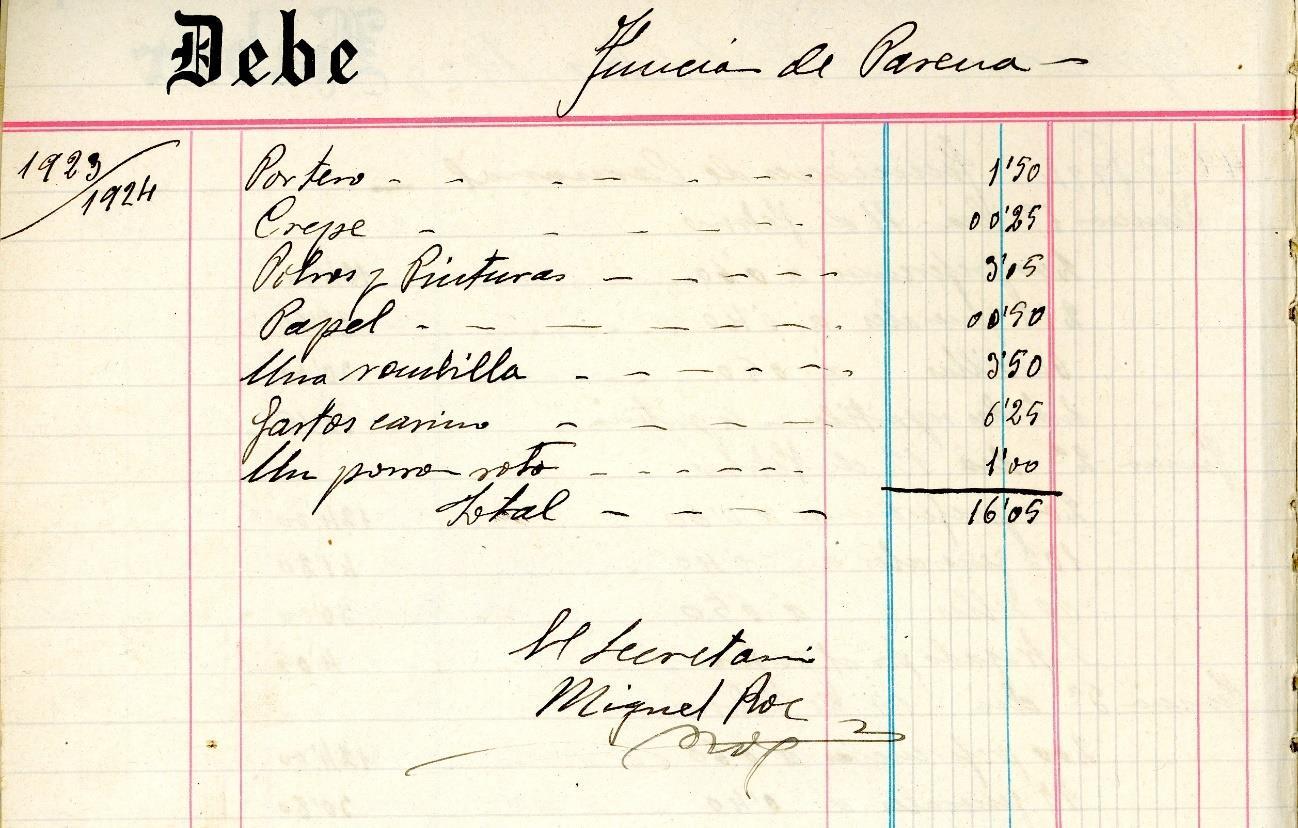 Debe Función de Pareua
1923/1924
Portero - - - - - - - - 1'50
Crepe - - - - - - - 00'25
Polvos y Pinturas - - - - - - 3'05
Papel - - - - - - - - 00'50
Una vombilla - - - - - - 3'50
Gastos casino - - - - - - 6'25
Un porron roto - - - - - - 1'00
Total - - - - 16'05
El Secretario
Miguel Roc